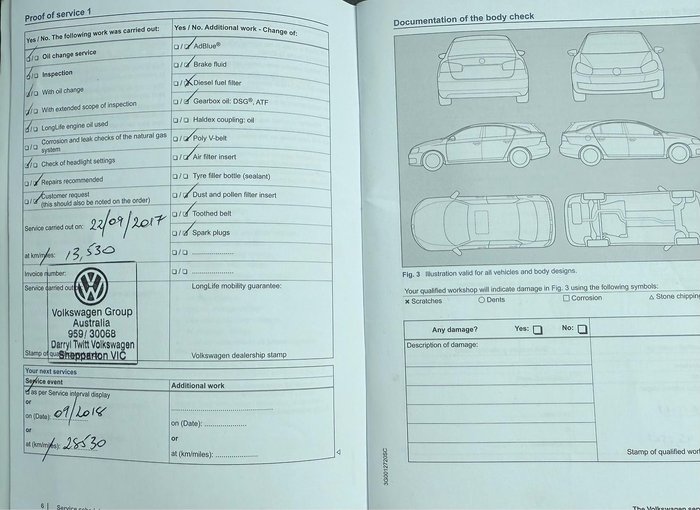 Proof of service 1
Yes / No. The following work was carried out:
Oil change service
Inspection
With oil change
With extended scope of inspection
LongLife engine oil used
Corrosion and leak checks of the natural gas
system
Check of headlight settings
Repairs recommended
Customer request
(this should also be noted on the order)
Service carried out on: 22/09/2017
at km/miles: 13,530
Invoice number:
Service carried out
Volkswagen Group
Australia
959/ 30068
Darryl Twitt Volkswagen
Shepparton VIC
Stamp of
Yes / No. Additional work - Change of:
AdBlue®
Brake fluid
Diesel fuel filter
Gearbox oil: DSG®, ATF
Haldex coupling: oil
Poly V-belt
Air filter insert
Tyre filler bottle (sealant)
Dust and pollen filter insert
Toothed belt
Spark plugs
LongLife mobility guarantee:
Volkswagen dealership stamp
Your next services
Service event
as per Service interval display
or
on (Date): 09/2018
or
at (km/miles): 28530
Additional work
on (Date):
or
at (km/miles):
6 |
Documentation of the body check
Fig. 3 Illustration valid for all vehicles and body designs.
Your qualified workshop will indicate damage in Fig. 3 using the following symbols:
× Scratches ○ Dents □ Corrosion △ Stone chippin
Any damage? Yes: □ No: □
Description of damage:
Stamp of qualified wor
5G0012720SC
The Volkswagen